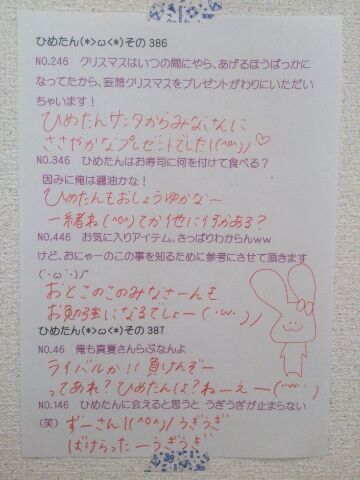 ひめたん(*>ω<*)その386
NO.246　クリスマスはいつの間にやら、あげるほうばっかに
なってたから、妄想クリスマスをプレゼントがわりにいただい
ちゃいます！
ひめたんサンタからみなさんに
ささやかなプレゼントでした!(^o^)/♡
NO.346　ひめたんはお寿司に何を付けて食べる？
因みに俺は醤油かな！
ひめたんもおしょうゆかなー
一緒ね(^o^)てか他に何がある？
NO.446　お気に入りアイテム、さっぱりわからんww
けど、おにゃーのこの事を知るために参考にさせて頂きます
(´･ω･`)ﾉﾞ
おとこのこのみなさーんも
お勉強になるでしょー(・w・)/
ひめたん(*>ω<*)その387
NO.46　俺も真夏さんらぶなんよ
ライバルか!! 負けんぞー
ってあれ？ひめたんは？ねーえー(･･w･･)
NO.146　ひめたんに会えると思うと うぎうぎが止まらない
(笑)
ずーさん!(^o^)/うぎうぎ
ばけらったーうぎうぎ